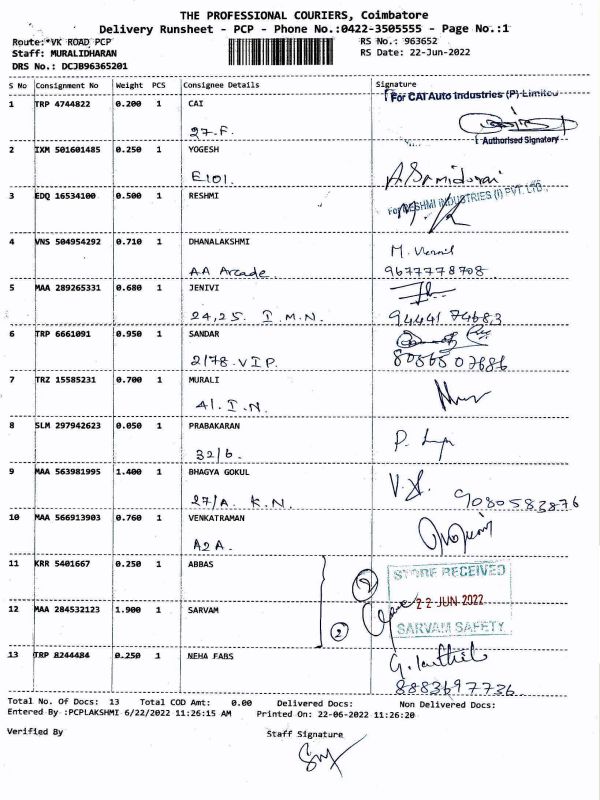 THE PROFESSIONAL COURIERS, Coimbatore
Delivery Runsheet - PCP - Phone No.:0422-3505555 - Page No.:1
Route:*VK ROAD PCP RS No.: 963652
Staff: MURALIDHARAN RS Date: 22-Jun-2022
DRS No.: DCJB96365201
S No Consignment No Weight PCS Consignee Details Signature
For CAI Auto Industries (P) Limited
1 TRP 4744822 0.200 1 CAI
27-F.
Authorised Signatory
2 IXM 501601485 0.250 1 YOGESH
E101.
3 EDQ 16534100 0.500 1 RESHMI
For RESHMI INDUSTRIES (I) PVT. LTD.,
4 VNS 504954292 0.710 1 DHANALAKSHMI
AA Arcade 9677778708
5 MAA 289265331 0.680 1 JENIVI
24,25. I.M.N. 94441 74683
6 TRP 6661091 0.950 1 SANDAR
2/78. VIP. 8056507686
7 TRZ 15585231 0.700 1 MURALI
41. I.N.
8 SLM 297942623 0.050 1 PRABAKARAN
32/6.
9 MAA 563981995 1.400 1 BHAGYA GOKUL
27/A. K.N. 9080583876
10 MAA 566913903 0.760 1 VENKATRAMAN
A2A.
11 KRR 5401667 0.250 1 ABBAS
STORE RECEIVED
12 MAA 284532123 1.900 1 SARVAM
22 JUN 2022
2
SARVAM SAFETY
13 TRP 8244484 0.250 1 NEHA FABS
8883697736
Total No. Of Docs: 13 Total COD Amt: 0.00 Delivered Docs: Non Delivered Docs:
Entered By :PCPLAKSHMI 6/22/2022 11:26:15 AM Printed On: 22-06-2022 11:26:20
Verified By Staff Signature